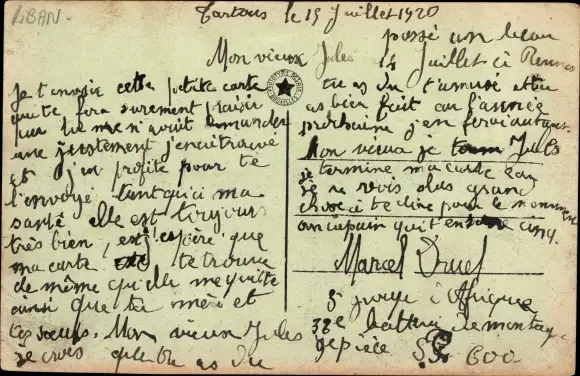 LIBAN-
Tartous le 15 Juillet 1920
Mon vieux Jules
Je t'envoie cette petite carte
qui te fera surement plaisir
car tu me n'avait demander
une justement j'en ai trouve
et j'en profite pour te
l'envoyé. tant qu'i ma
santé elle est toujours
très bien, est j'espère que
ma carte te trouve
de même qu'elle me quitte
ainsi que ta mère et
tes soeurs. Mon vieux Jules
je crois que tu as du
passé un beau
14 Juillet à Rennes
tu as du t'amusé et tu
as bien fait car l'année
prochaine j'en ferai autant.
Mon vieux Jules
je termine ma carte car
je ne vois plus grand
chose à te dire pour le moment
un copain qui t'en serre cinq.
Marcel Druel
5e groupe d'Afrique
32e batterie de montagne
1e pièce S.P. 600